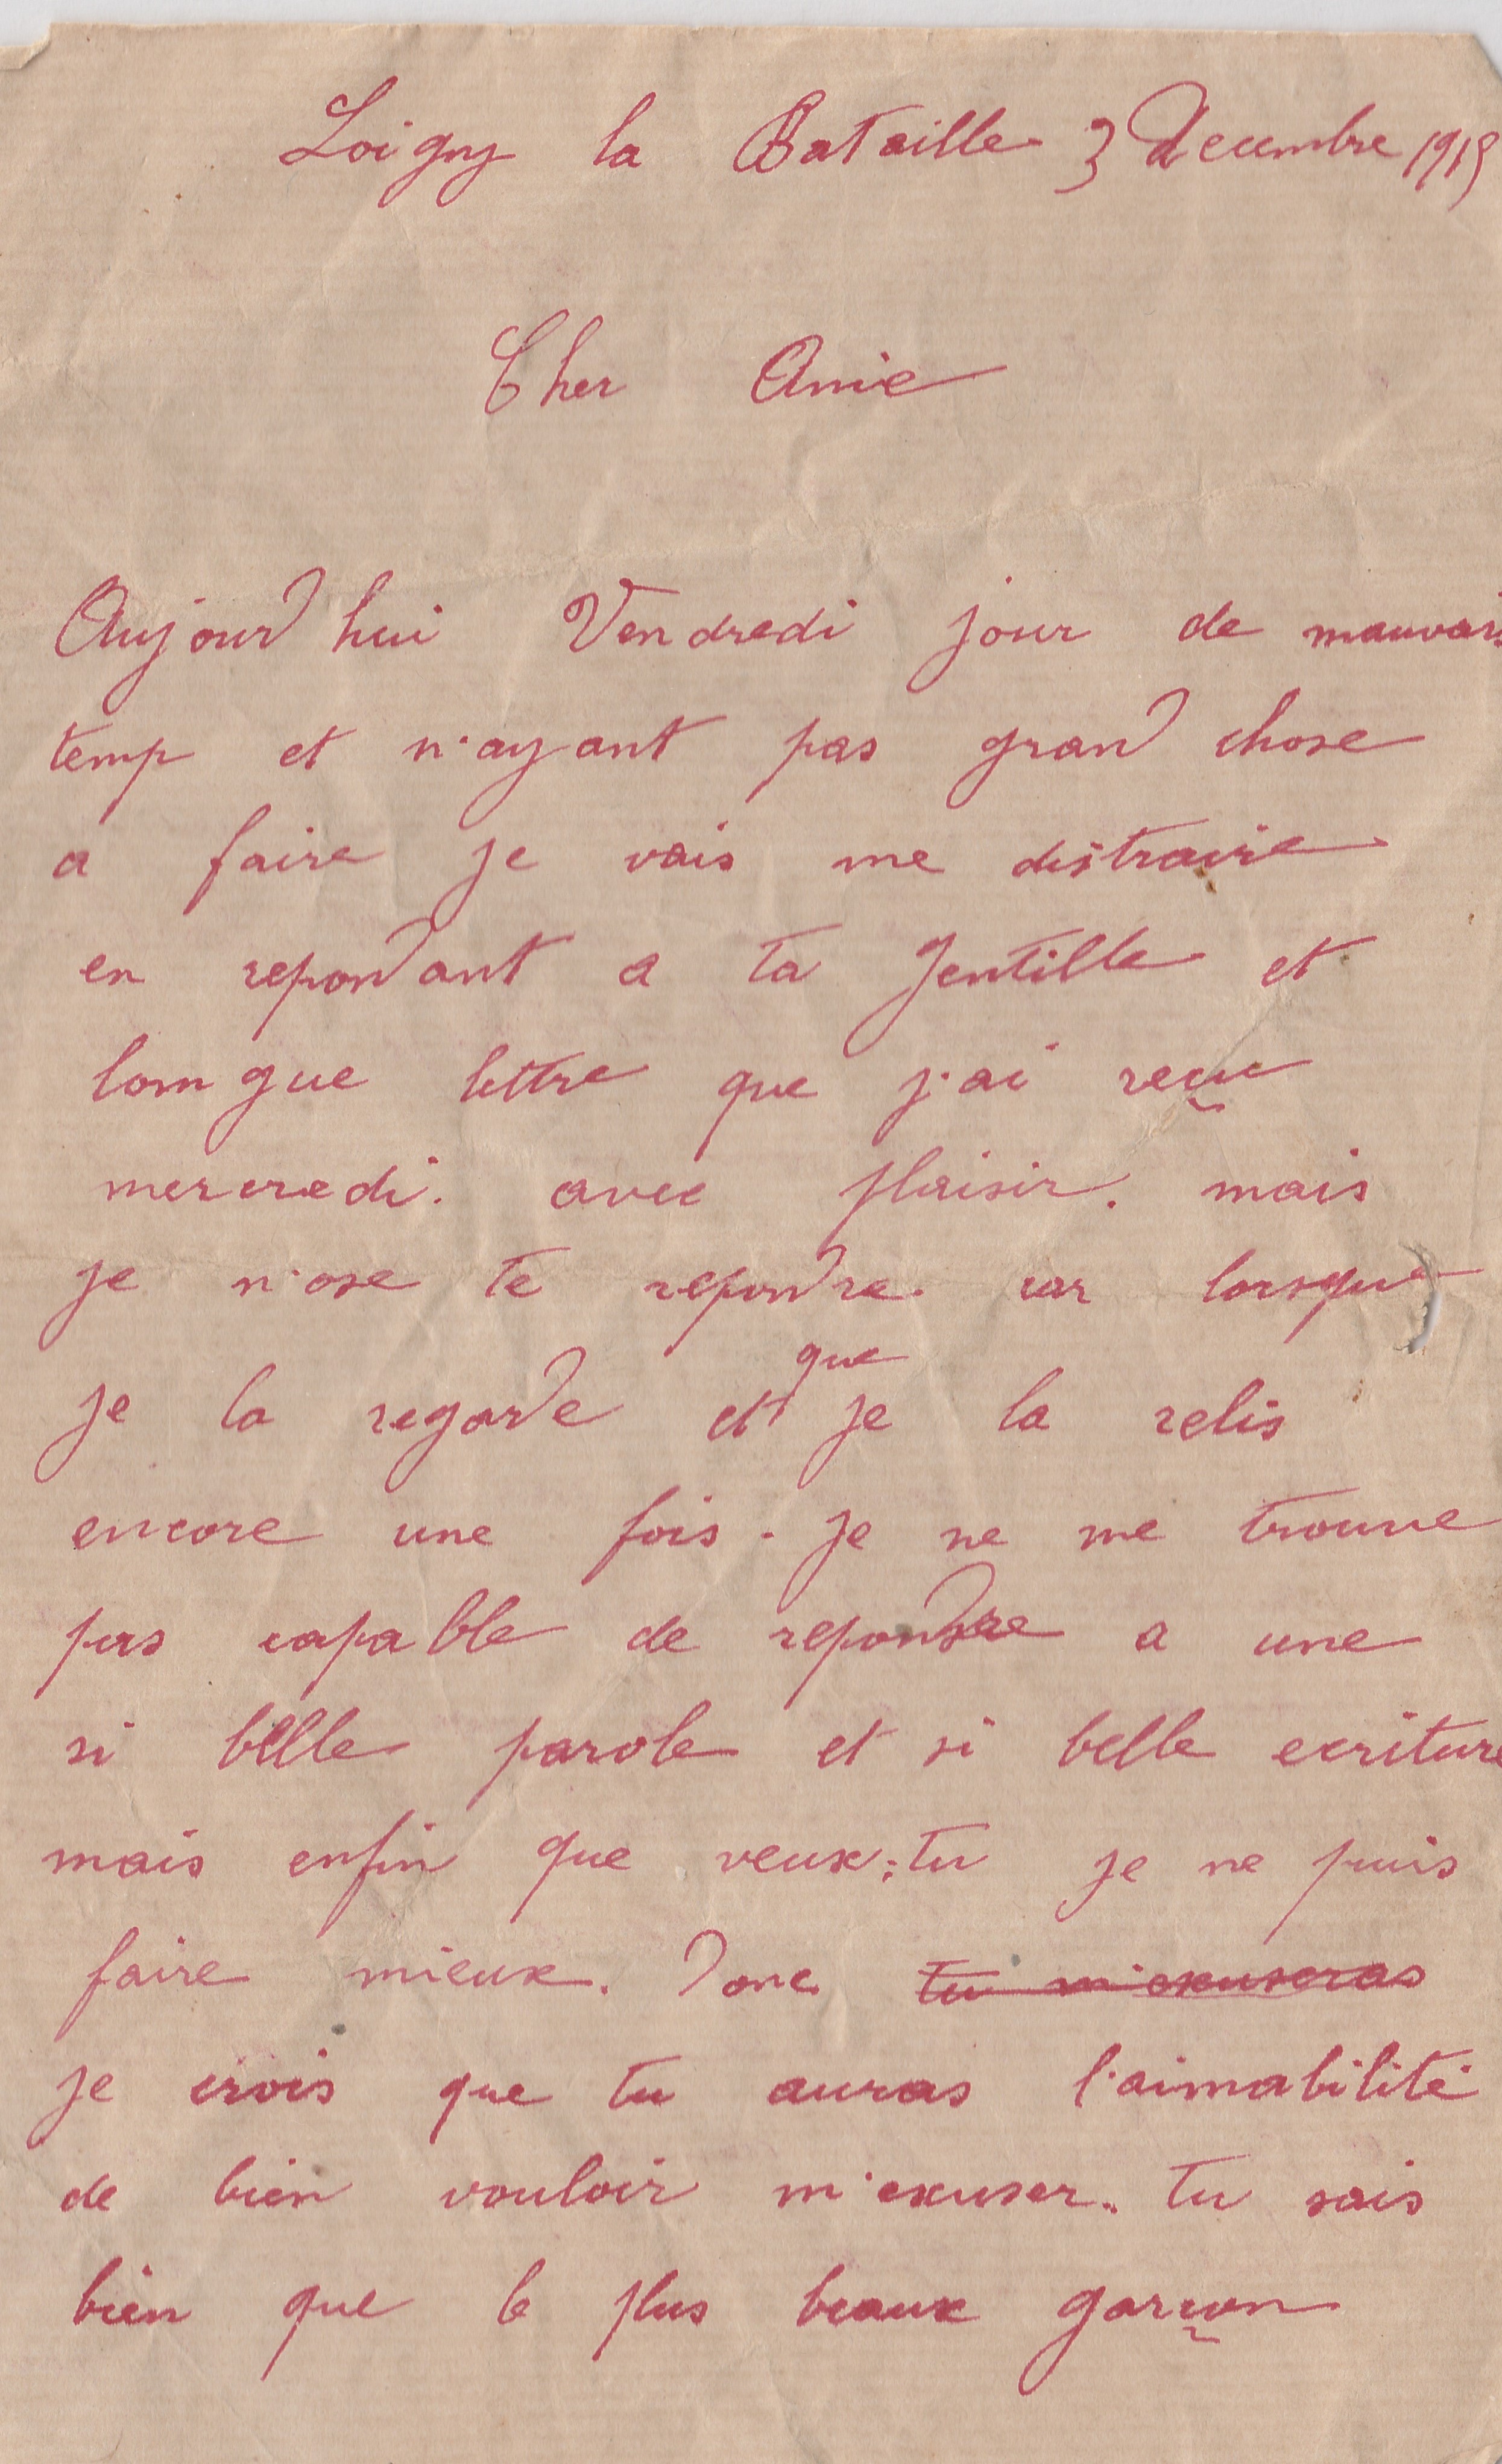 Loigny la Bataille 3 Decembre 1915
Cher Amie
Aujourd'hui Vendredi jour de mauvais
temp et n'ayant pas grand chose
a faire je vais me distraire
en repondant a ta Jentille et
longue lettre que j'ai reçue
mercredi. avec plaisir. mais
je n'ose te repondre. car lorsque
je la regarde et que je la relis
encore une fois. je ne me trouve
pas capable de repondre a une
si belle parole et si belle ecriture
mais enfin que veux-tu je ne puis
faire mieux. Donc tu m'exuseras
je crois que tu auras l'aimabilité
de bien vouloir m'exuser. tu sais
bien que le plus beaux garçon